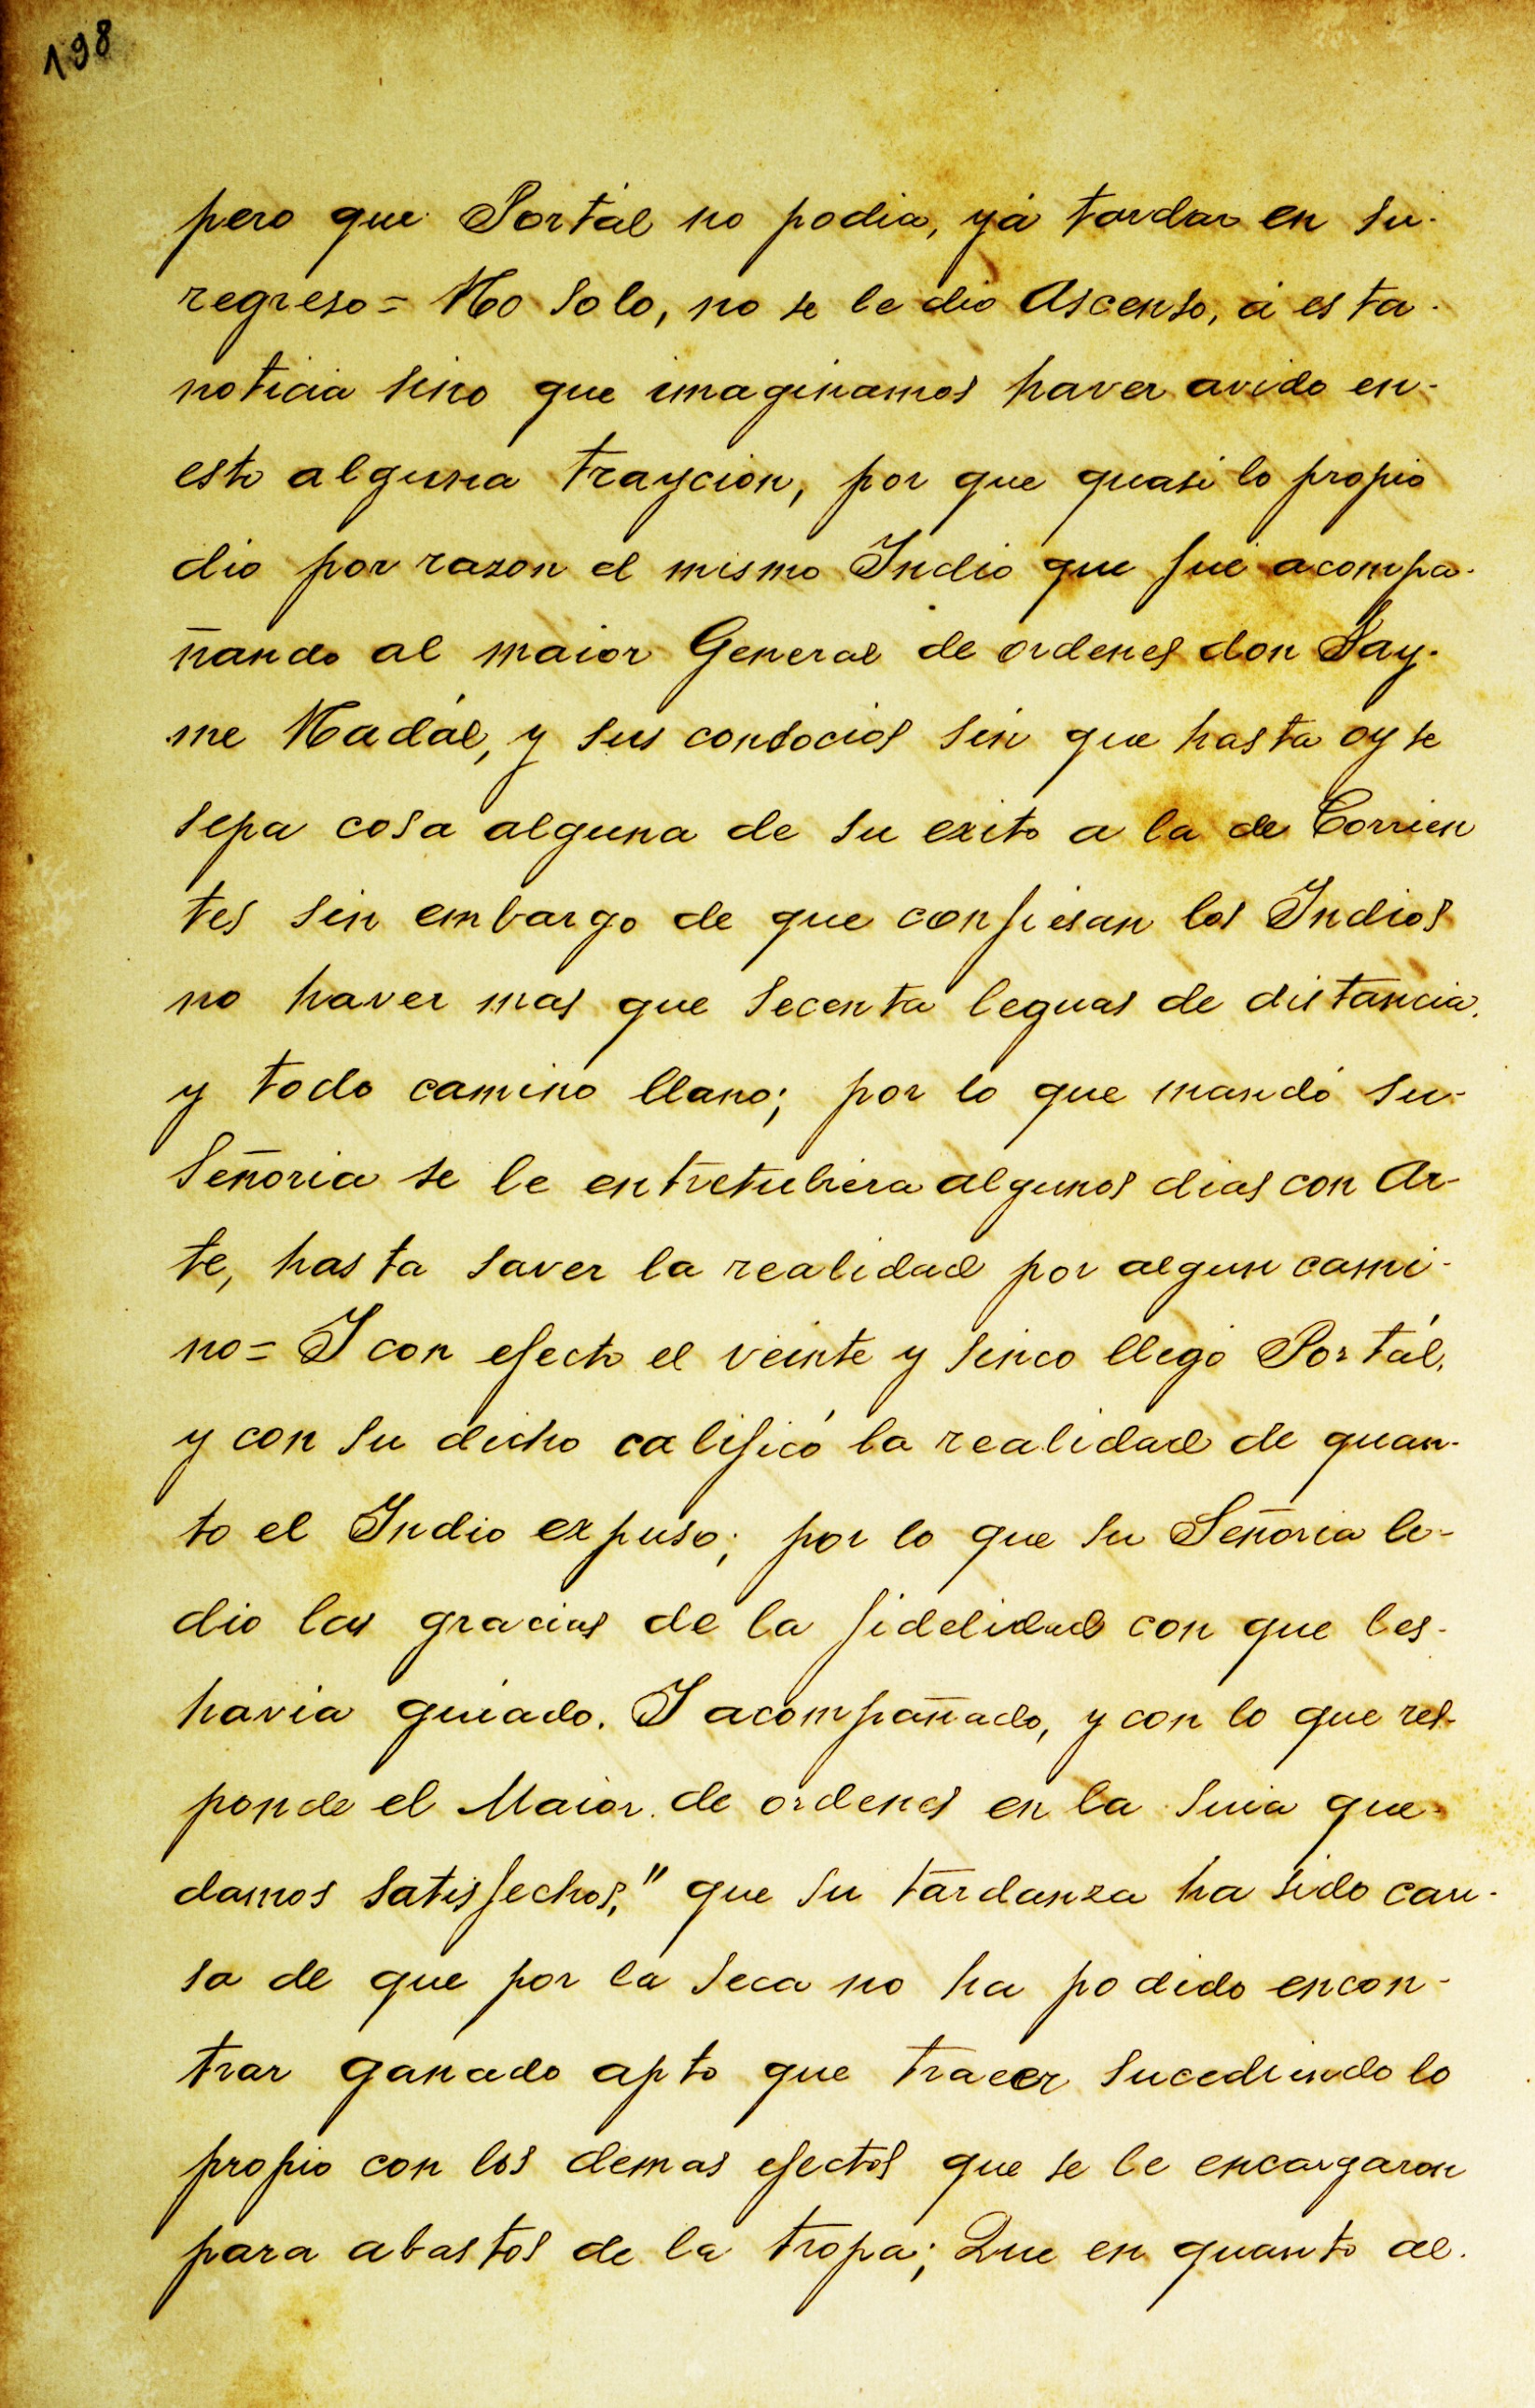 198
pero que Portál no podia, yá tardar en su-
regreso= No solo, no se le dio Ascenso, á esta-
noticia sino que imaginamos haver avido en-
esto alguna traycion, por que quasi lo propio
dio por razon el mismo Indio que fué acompa-
ñando al maior General de ordenes don Jay-
me Nadál, y sus consocios sin que hasta oy se
sepa cosa alguna de su exito a la de Corrien
tes sin embargo de que confiesan los Indios
no haver mas que secenta leguas de distancia,
y todo camino llano; por lo que mandó su-
Señoria se le entretubiera algunos dias con Ar-
te, hasta saver la realidad por algun cami-
no= I con efecto el veinte y sinco llegó Portál,
y con su dicho calificó la realidad de quan-
to el Indio expuso; por lo que su Señoria le-
dio las gracias de la fidelidad con que les-
havia guiado. I acompañado, y con lo que res-
ponde el Maior de ordenes en la suia que-
damos satisfechos," que su tardanza ha sido cau-
sa de que por la seca no ha podido encon-
trar ganado apto que traer sucediendo lo
propio con los demas efectos que se le encargaron
para abastos de la tropa; Que en quanto al-